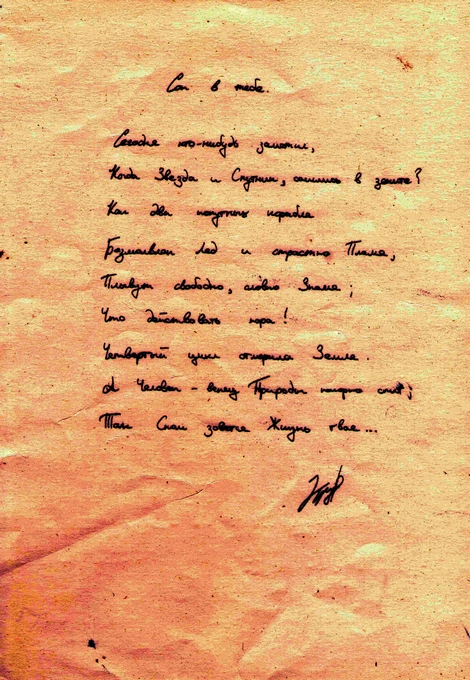 Сон в тебе.
Сегодня кто-нибудь заметил,
Когда Звезда и Спутник, сошлись в зените?
Как два попутных корабля
Безмолвная Лед и страстно Пламя,
Плывут свободно, словно Знамя;
Что действовать пора!
Четвертый цикл отмерила Земля.
А Человек - венец Природы мирно спит;
Там Сном зовется Жизнь твоя...